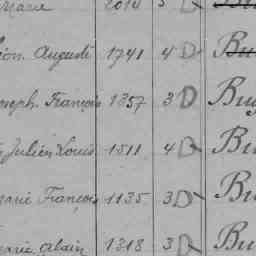 Marie 2014 3 D Bu
ion Auguste 1741 4 D Bu
oseph François 1357 3 D Bu
Julien Louis 1511 4 D Bu
Marie François 1135 3 D Bu
Marie Alain 1318 3 D Bu